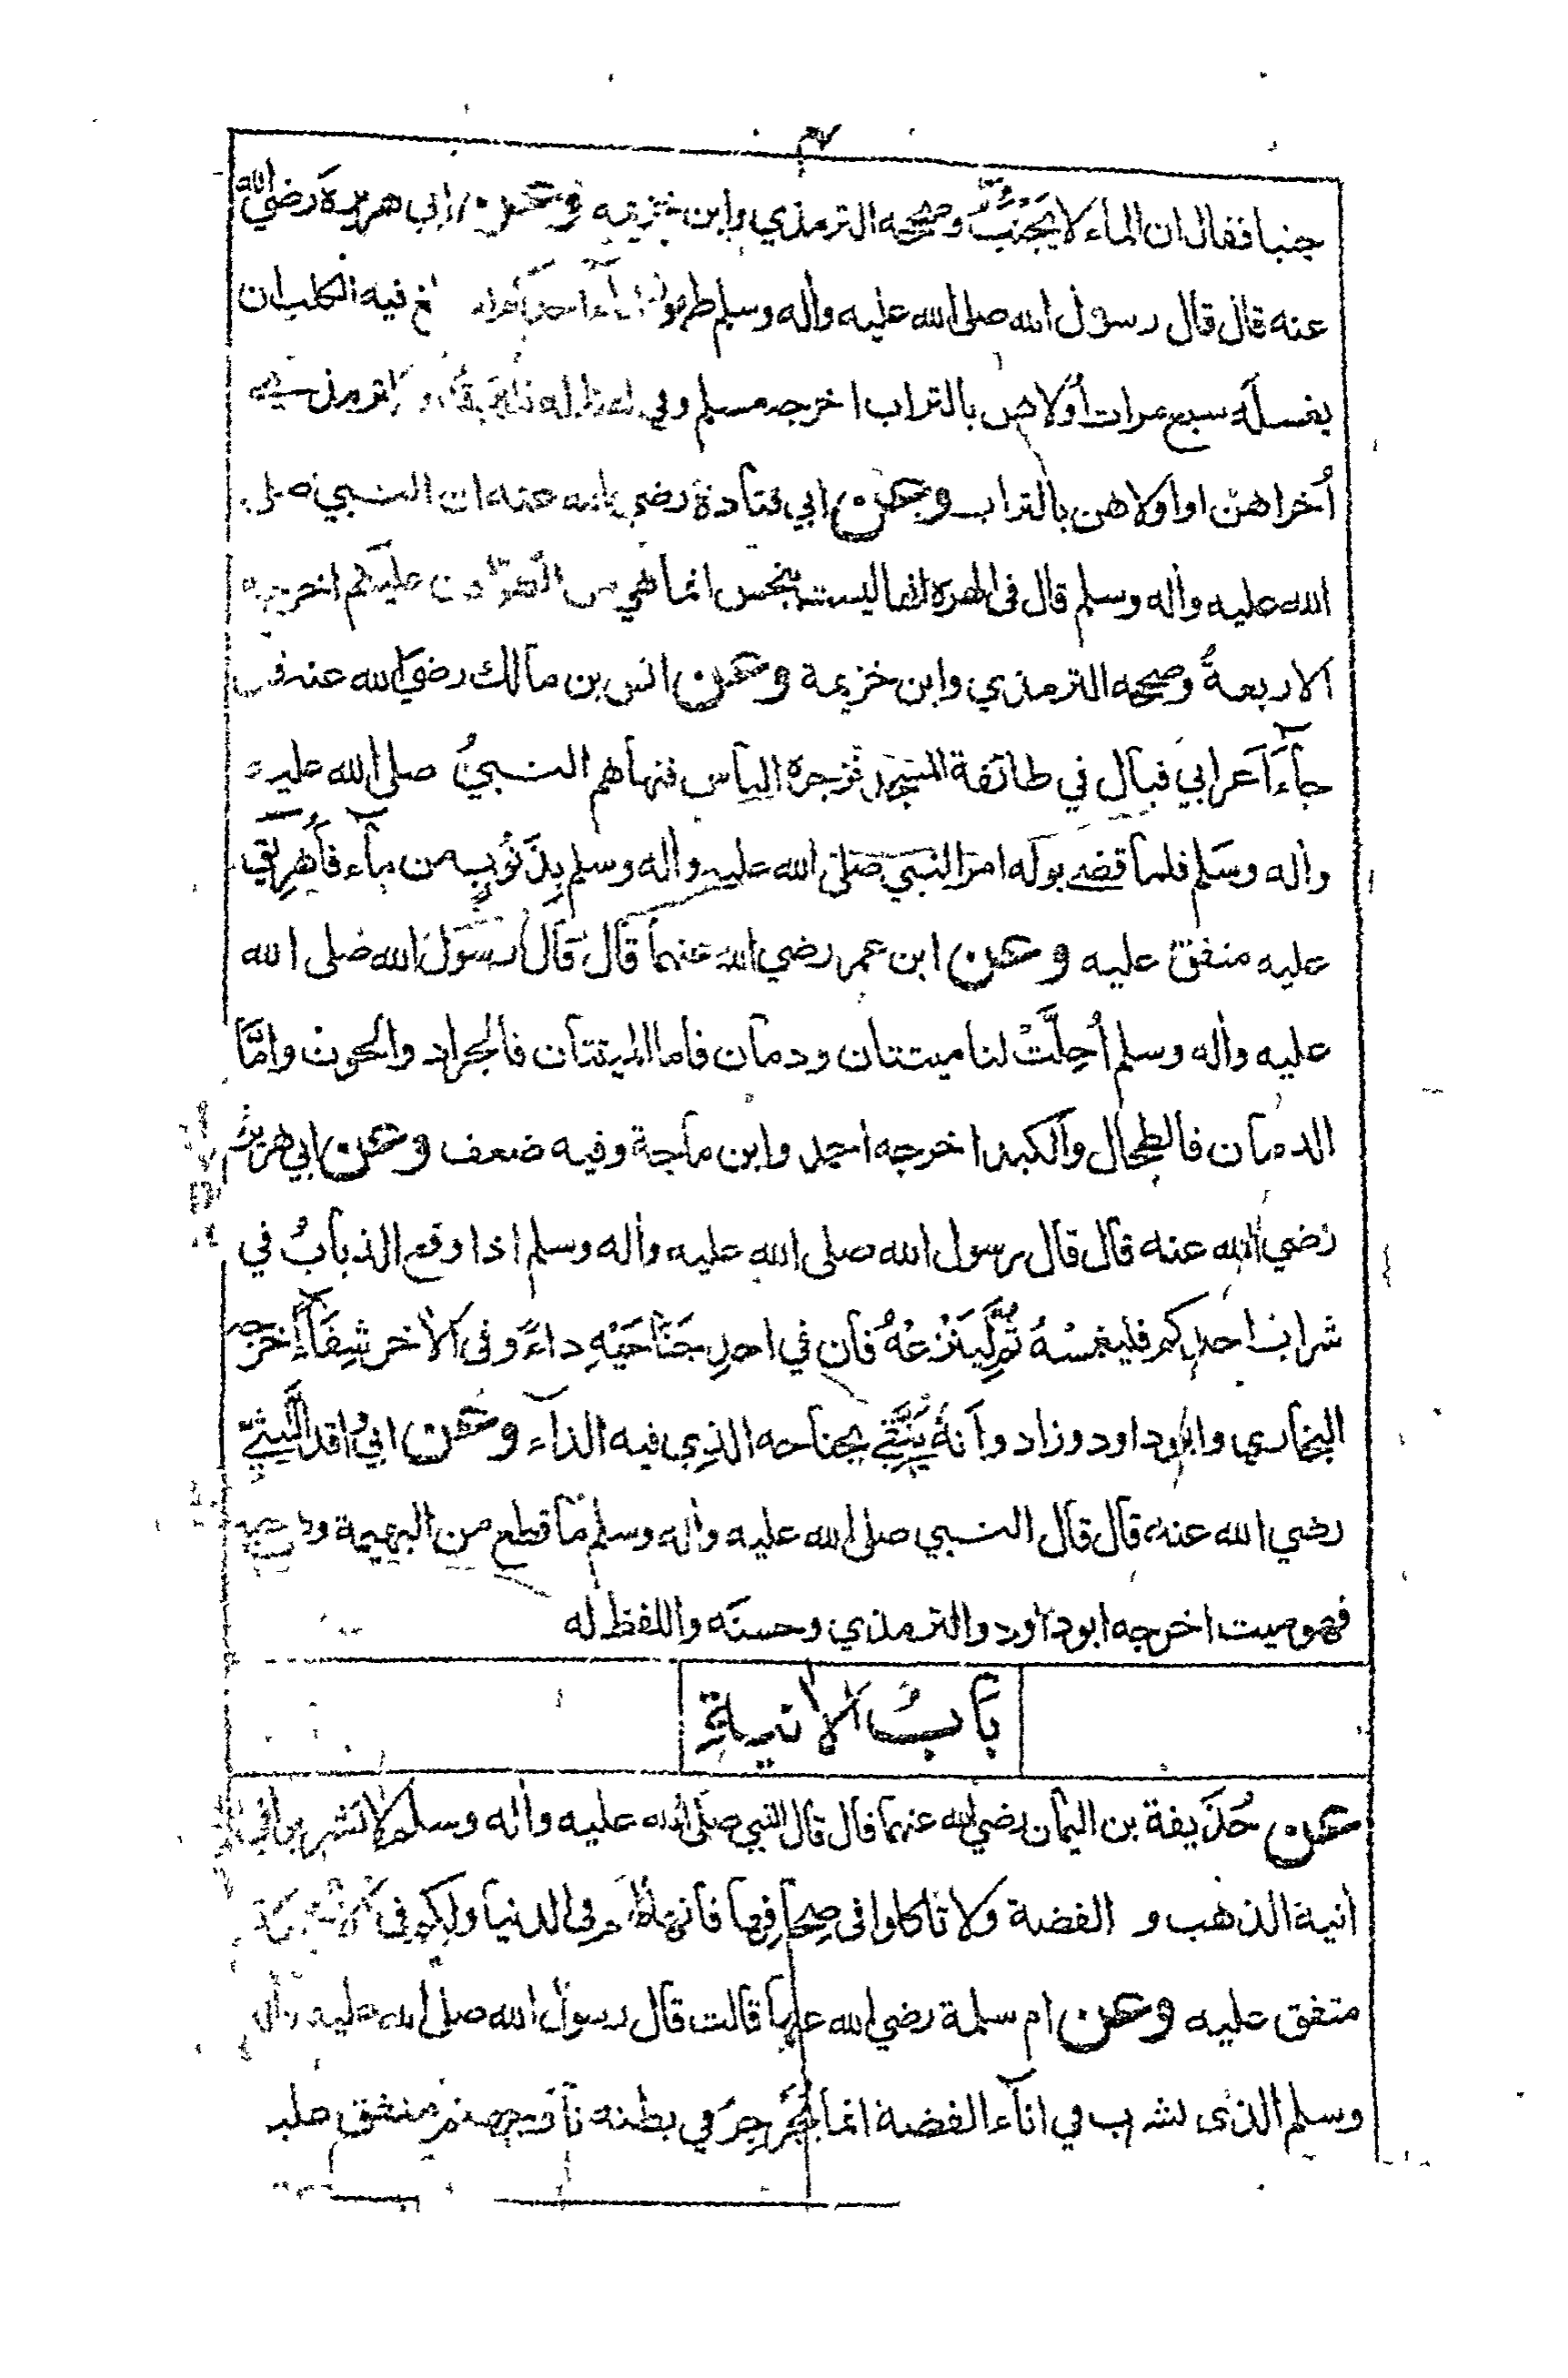 جنبا فقال ان الماء لا يَجْنُبُ وصححه الترمذي وابن خزيمة وعن ابي هريرة رضي الله
عنه قال قال رسول الله صلى الله عليه واله وسلم طهور اناء احدكم اذا فيه الكلب ان
يغسله سبع مرات أولاهن بالتراب اخرجه مسلم وفي لفظ له فليرقه وللترمذي
أخراهن او اولاهن بالتراب وعن ابي قتادة رضي الله عنه ان النبي صلى
الله عليه واله وسلم قال فى الهرة انها ليست بنجس انما هي من الطوافين عليكم اخرجه
الاربعة وصححه الترمذي وابن خزيمة وعن انس بن مالك رضي الله عنه قال
جآءَ اَعرابي فبال في طائفة المسجد فزجره الناس فنهاهم النبيُ صلى الله عليه
واله وسَلم فلما قضى بوله امر النبي صلى الله عليه واله وسلم بِذَنُوبٍ من مآء فأُهرِيقَ
عليه متفق عليه وعن ابن عمر رضي الله عنهما قال قال رسول الله صلى الله
عليه واله وسلم أُحِلَّتْ لنا ميتتان ودمان فاما الميتتان فالجراد والحوت وامَّا
الدمان فالطحال والكبد اخرجه احمد وابن ماجة وفيه ضعف وعن ابي هريرة
رضي الله عنه قال قال رسول الله صلى الله عليه واله وسلم اذا وقع الذبابُ في
شراب احدكم فليغمسْهُ ثُمَّ لْيَنْزعْهُ فان في احدِ جَنَاحَيْهِ داءً وفى الاخر شِفَآءً اخرجه
البخاري وابوداود وزاد وأنهُ يَتَّقِي بجناحه الذي فيه الدآء وعن ابي واقد اللَّيثيِّ
رضي الله عنه قال قال النبي صلى الله عليه واله وسلم ما قطع من البهيمة وهي حية
فهو ميت اخرجه ابوداود والترمذي وحسنَه واللفظ له
بابُ الانيةِ
عن حُذَيفة بن اليمان رضي الله عنهما قال قال النبي صلى الله عليه واله وسلم لا تشربوا في
انية الذهب و الفضة ولا تاكلوا فى صِحَافِها فانها لهم فى الدنيا ولكم فى الاخرة
متفق عليه وعن ام سلمة رضي الله عنها قالت قال رسول الله صلى الله عليه واله
وسلم الذى يشرب في انآء الفضة انما يُجَرجِرُ في بطنه نار جهنم متفق عليه